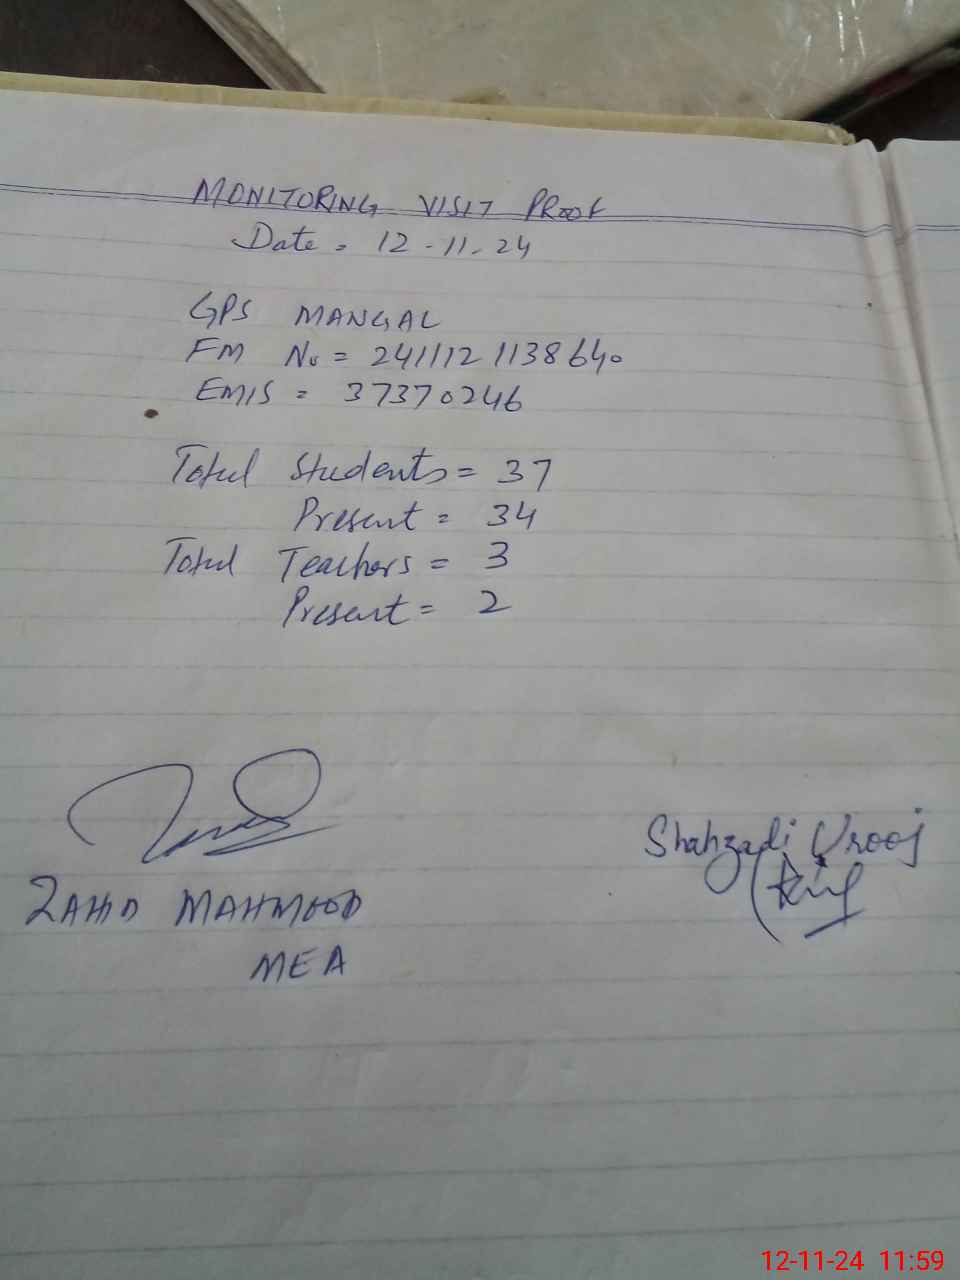 MONITORING VISIT PROOF
Date = 12-11-24
GPS MANGAL
FM No = 2411121138640
EMIS = 37370246
Total Students = 37
Present = 34
Total Teachers = 3
Present = 2
Shahzadi Urooj
ZAHID MAHMOOD
MEA
12-11-24 11:59